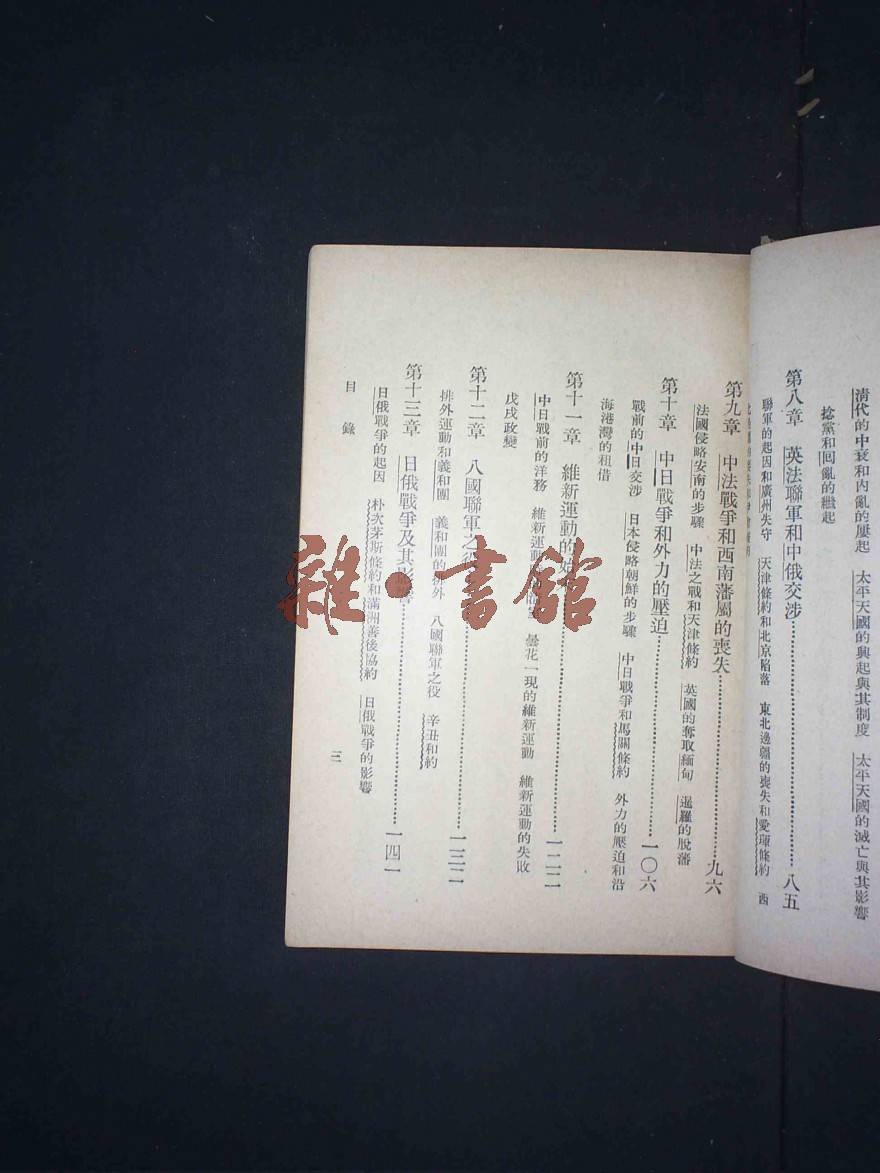 清代的中衰和內亂的屢起　太平天國的興起與其制度　太平天國的滅亡與其影響
捻黨和回亂的繼起
第八章　英法聯軍和中俄交涉……八五
聯軍的起因和廣州失守　天津條約和北京陷落　東北邊疆的喪失和愛琿條約　西
第九章　中法戰爭和西南藩屬的喪失……九六
法國侵略安南的步驟　中法之戰和天津條約　英國的奪取緬甸　暹羅的脫藩
第十章　中日戰爭和外力的壓迫……一〇六
戰前的中日交涉　日本侵略朝鮮的步驟　中日戰爭和馬關條約　外力的壓迫和沿
海港灣的租借
第十一章　維新運動的始……一二二
中日戰前的洋務　維新運動　曇花一現的維新運動　維新運動的失敗
戊戌政變
第十二章　八國聯軍之役……一三二
排外運動和義和團　義和團的排外　八國聯軍之役　辛丑和約
第十三章　日俄戰爭及其影響……一四一
日俄戰爭的起因　朴次茅斯條約和滿洲善後協約　日俄戰爭的影響
目錄
三
雜·書館